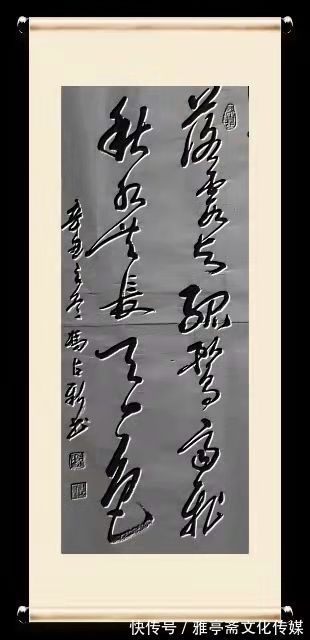 落霞与孤鹜齐飞
秋水共长天一色
辛丑之冬馮占彩书
快传号 / 雅亭斋文化传媒